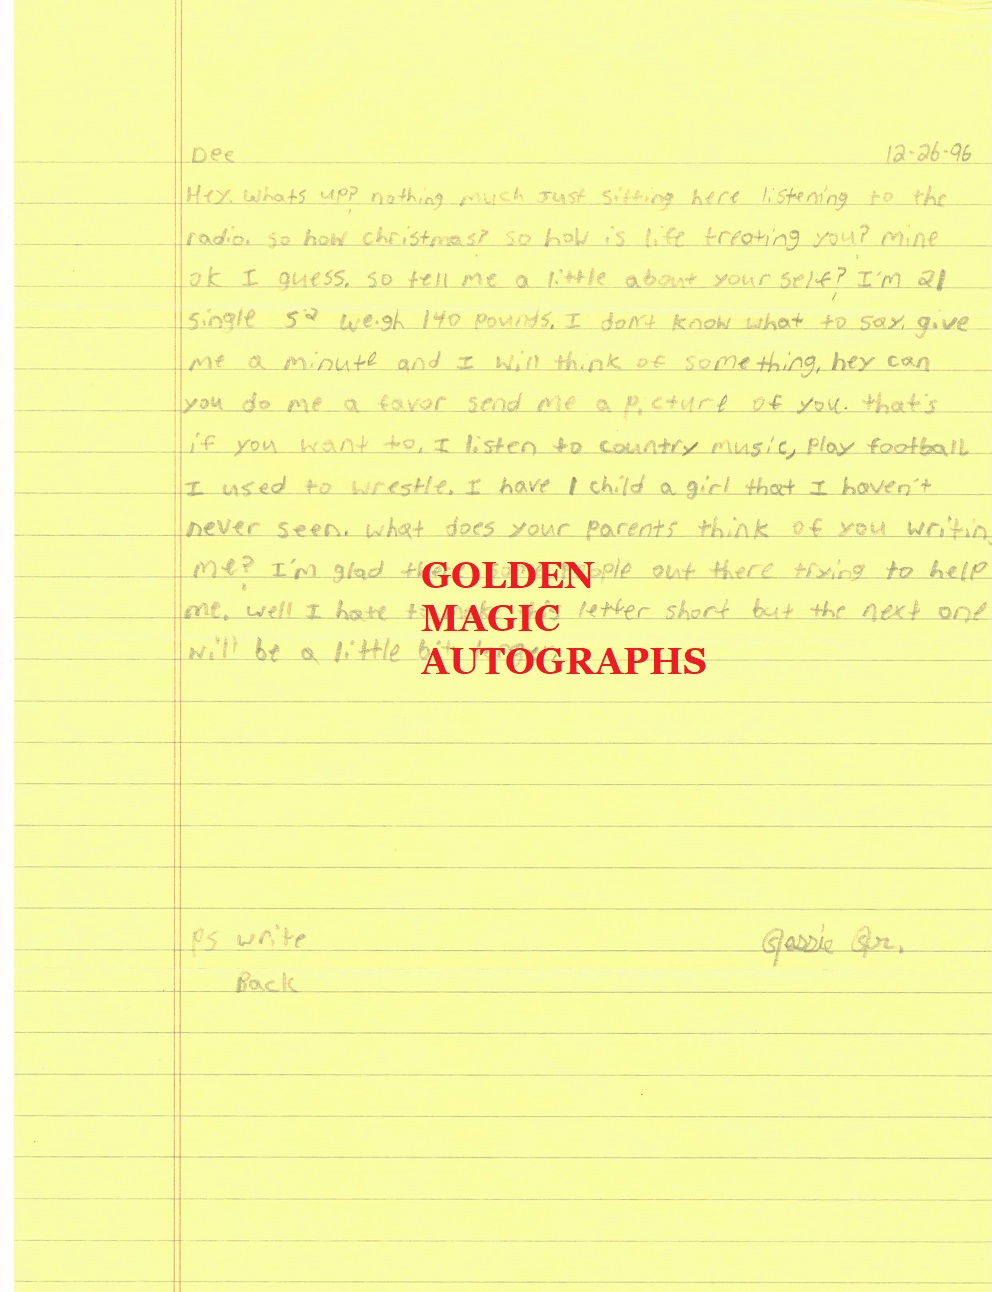 Dee 12-26-96
Hey. whats up? nothing much Just sitting here listening to the
radio. so how christmas? so how is life treating you? mine
ok I guess. so tell me a little about your self? I'm 21
single 5² weigh 140 pounds. I don't know what to say. give
me a minute and I will think of something, hey can
you do me a favor send me a picture of you. that's
if you want to. I listen to country music, play football
I used to wrestle. I have 1 child a girl that I haven't
never seen. what does your parents think of you writing
me? I'm glad people out there trying to help
me. well I hate to make this letter short but the next one
will be a little bit longer.
GOLDEN
MAGIC
AUTOGRAPHS
ps write
Back
Jessie Jr.